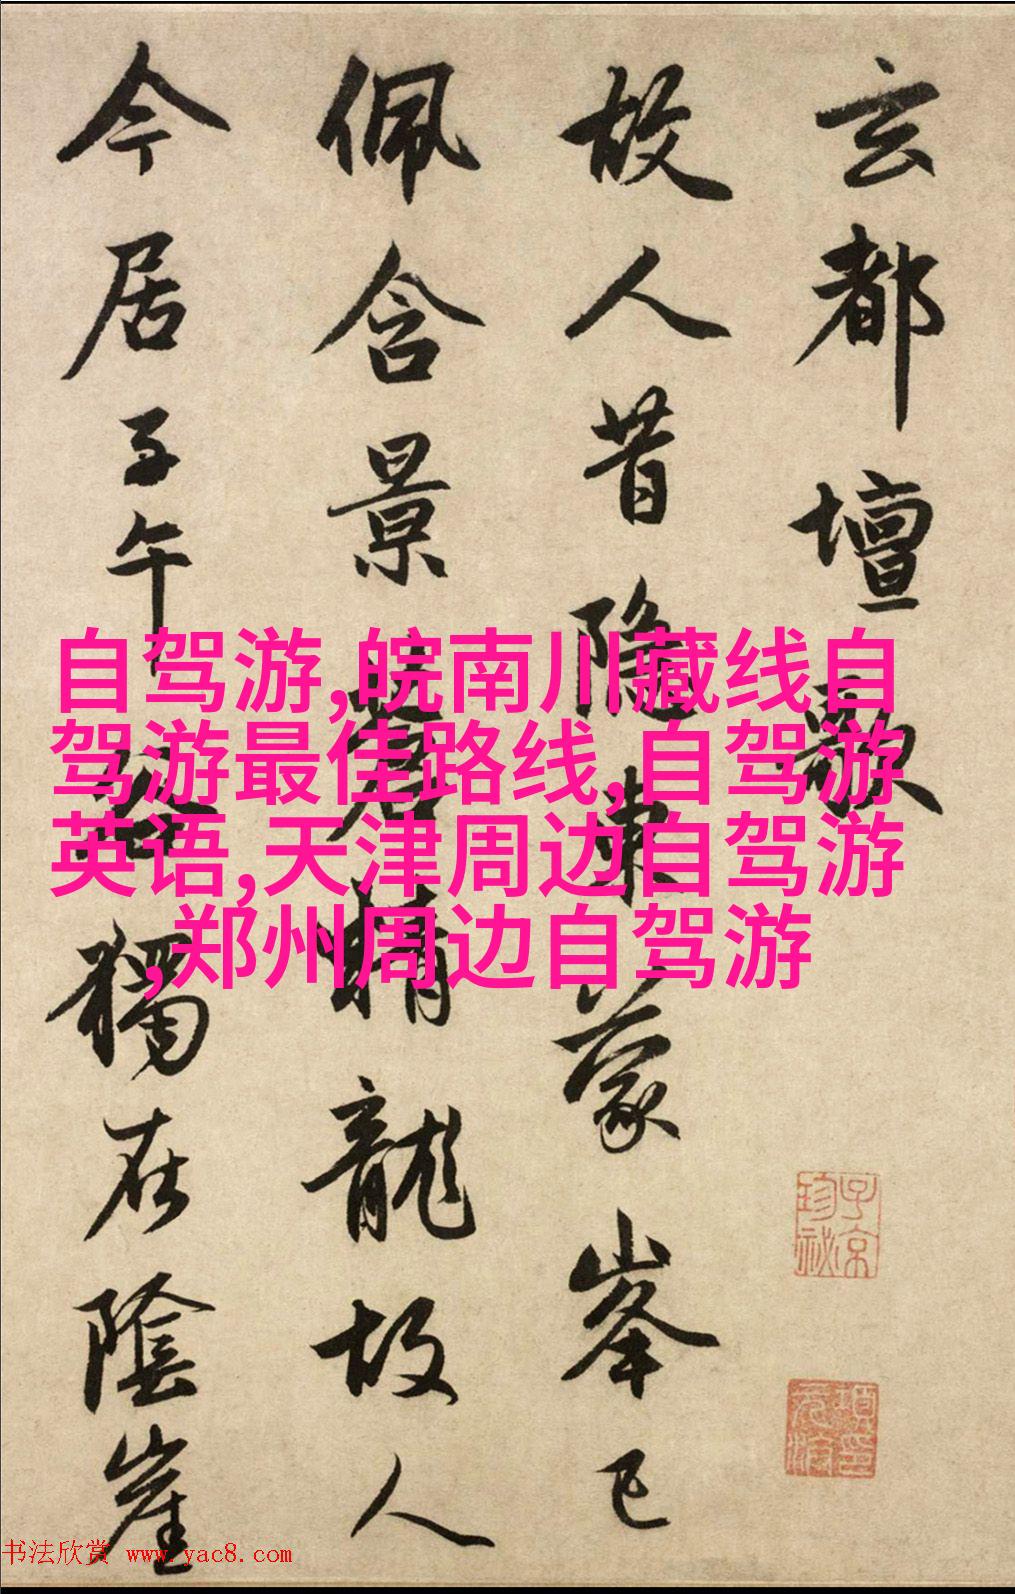 玄都壇歌
故人昔隱東蒙峯已
佩含景蒼精龍故人
今居子午谷獨在陰崖
自驾游,皖南川藏线自
驾游最佳路线,自驾游
英语,天津周边自驾游
,郑州周边自驾游
子京
珍祕
书法欣赏 www.yac8.com